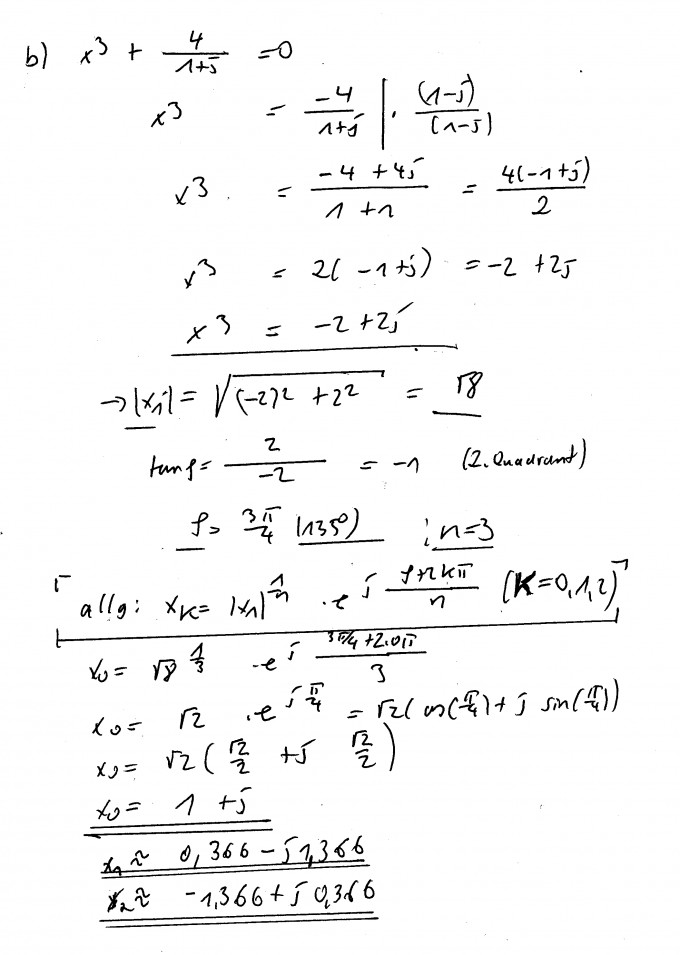 b) x³ + 4/(1+j) = 0
x³ = -4/(1+j) | · (1-j)/(1-j)
x³ = (-4 + 4j)/(1 + 1) = 4(-1+j)/2
x³ = 2(-1+j) = -2 + 2j
x³ = -2 + 2j
→ |x₁| = √((-2)² + 2²) = √8
tan φ = 2/-2 = -1 (2. Quadrant)
φ = 3π/4 (135°) ; n=3
allg: x_K = |x₁|^(1/n) · e^(j (φ+2kπ)/n) (K=0,1,2)
x₀ = √8^(1/3) · e^(j (3π/4 + 2·0π)/3)
x₀ = √2 · e^(j π/4) = √2 (cos(π/4) + j sin(π/4))
x₀ = √2 (√2/2 + j √2/2)
x₀ = 1 + j
x₁ ≈ 0,366 - j 1,366
x₂ ≈ -1,366 + j 0,366